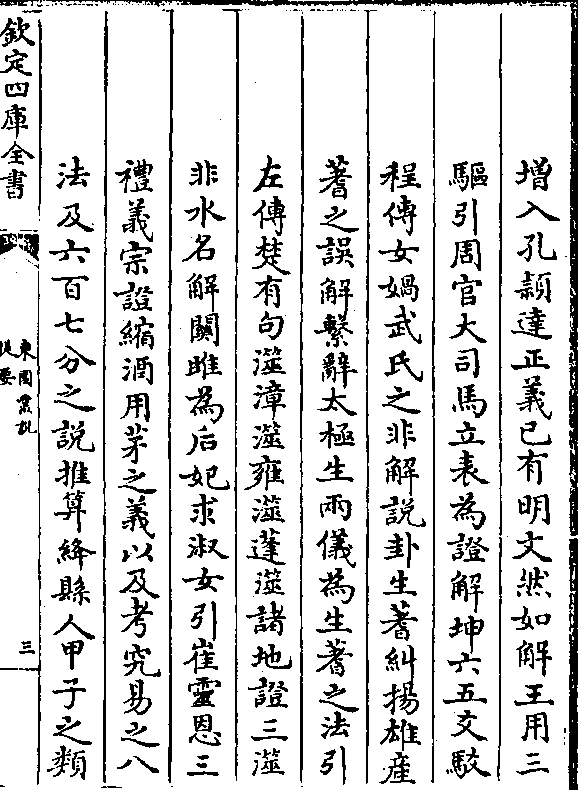 增入孔頴達正義已有明文然如解王用三
驅引周官大司馬立表為證解坤六五文駁
程傳女媧武氏之非解說卦生蓍糾揚雄産
蓍之誤解繫辭太極生兩儀為生蓍之法引
左傳楚有句澨漳澨雍澨薳澨諸地證三澨
非水名解關雎為后妃求淑女引崔靈恩三
禮義宗證縮酒用茅之義以及考究易之八
法及六百七分之說推算絳縣人甲子之類
欽定四庫全書
東園叢說
提要
三